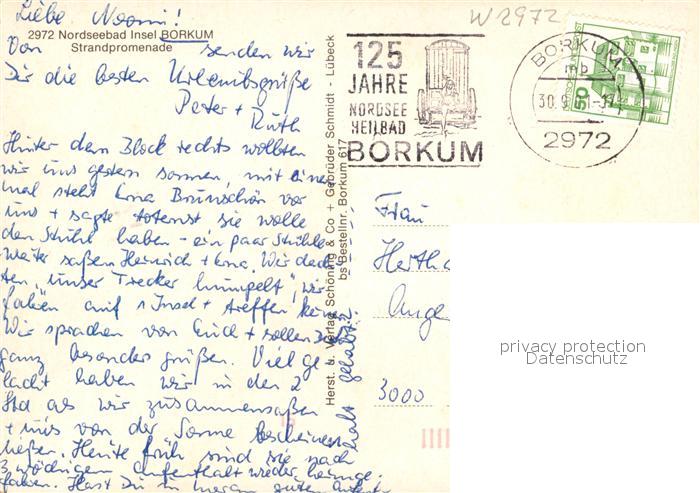 Liebe Noomi!
2972 Nordseebad Insel BORKUM
Strandpromenade
Von senden wir
Dir die besten Urlaubsgrüße
Peter +
Ruth
Hinter dem Block rechts wollten
wir uns gestern sonnen, mit eine
mal steht Erna Brunschön vor
uns + sagte toternst sie wolle
den Stuhl haben - ein paar Stühle
weiter saßen Heinrich + Erna. Wir dach
ten, "unser Trecker humpelt", wir
fahren auf 1 Insel + treffen
Wir sprachen von Euch + sollen Dich
ganz besonders grüßen. Viel ge
lacht haben wir in den 2
Std als wir zusammensaßen
+ uns von der Sonne bescheinen
ließen. Heute früh sind sie nach
3 wöchigen Aufenthalt wieder heimge-
fahren. Hast Du in Meran guten Aufent-
halt gehabt?
Herst. u. Verlag Schöning & Co + Gebrüder Schmidt - Lübeck
bs Bestellnr. Borkum 617
W 2972
125
JAHRE
NORDSEE
HEILBAD
BORKUM
BORKUM
mb
30.9
2972
50
Frau
Herth
Ange
3000
privacy protection
Datenschutz